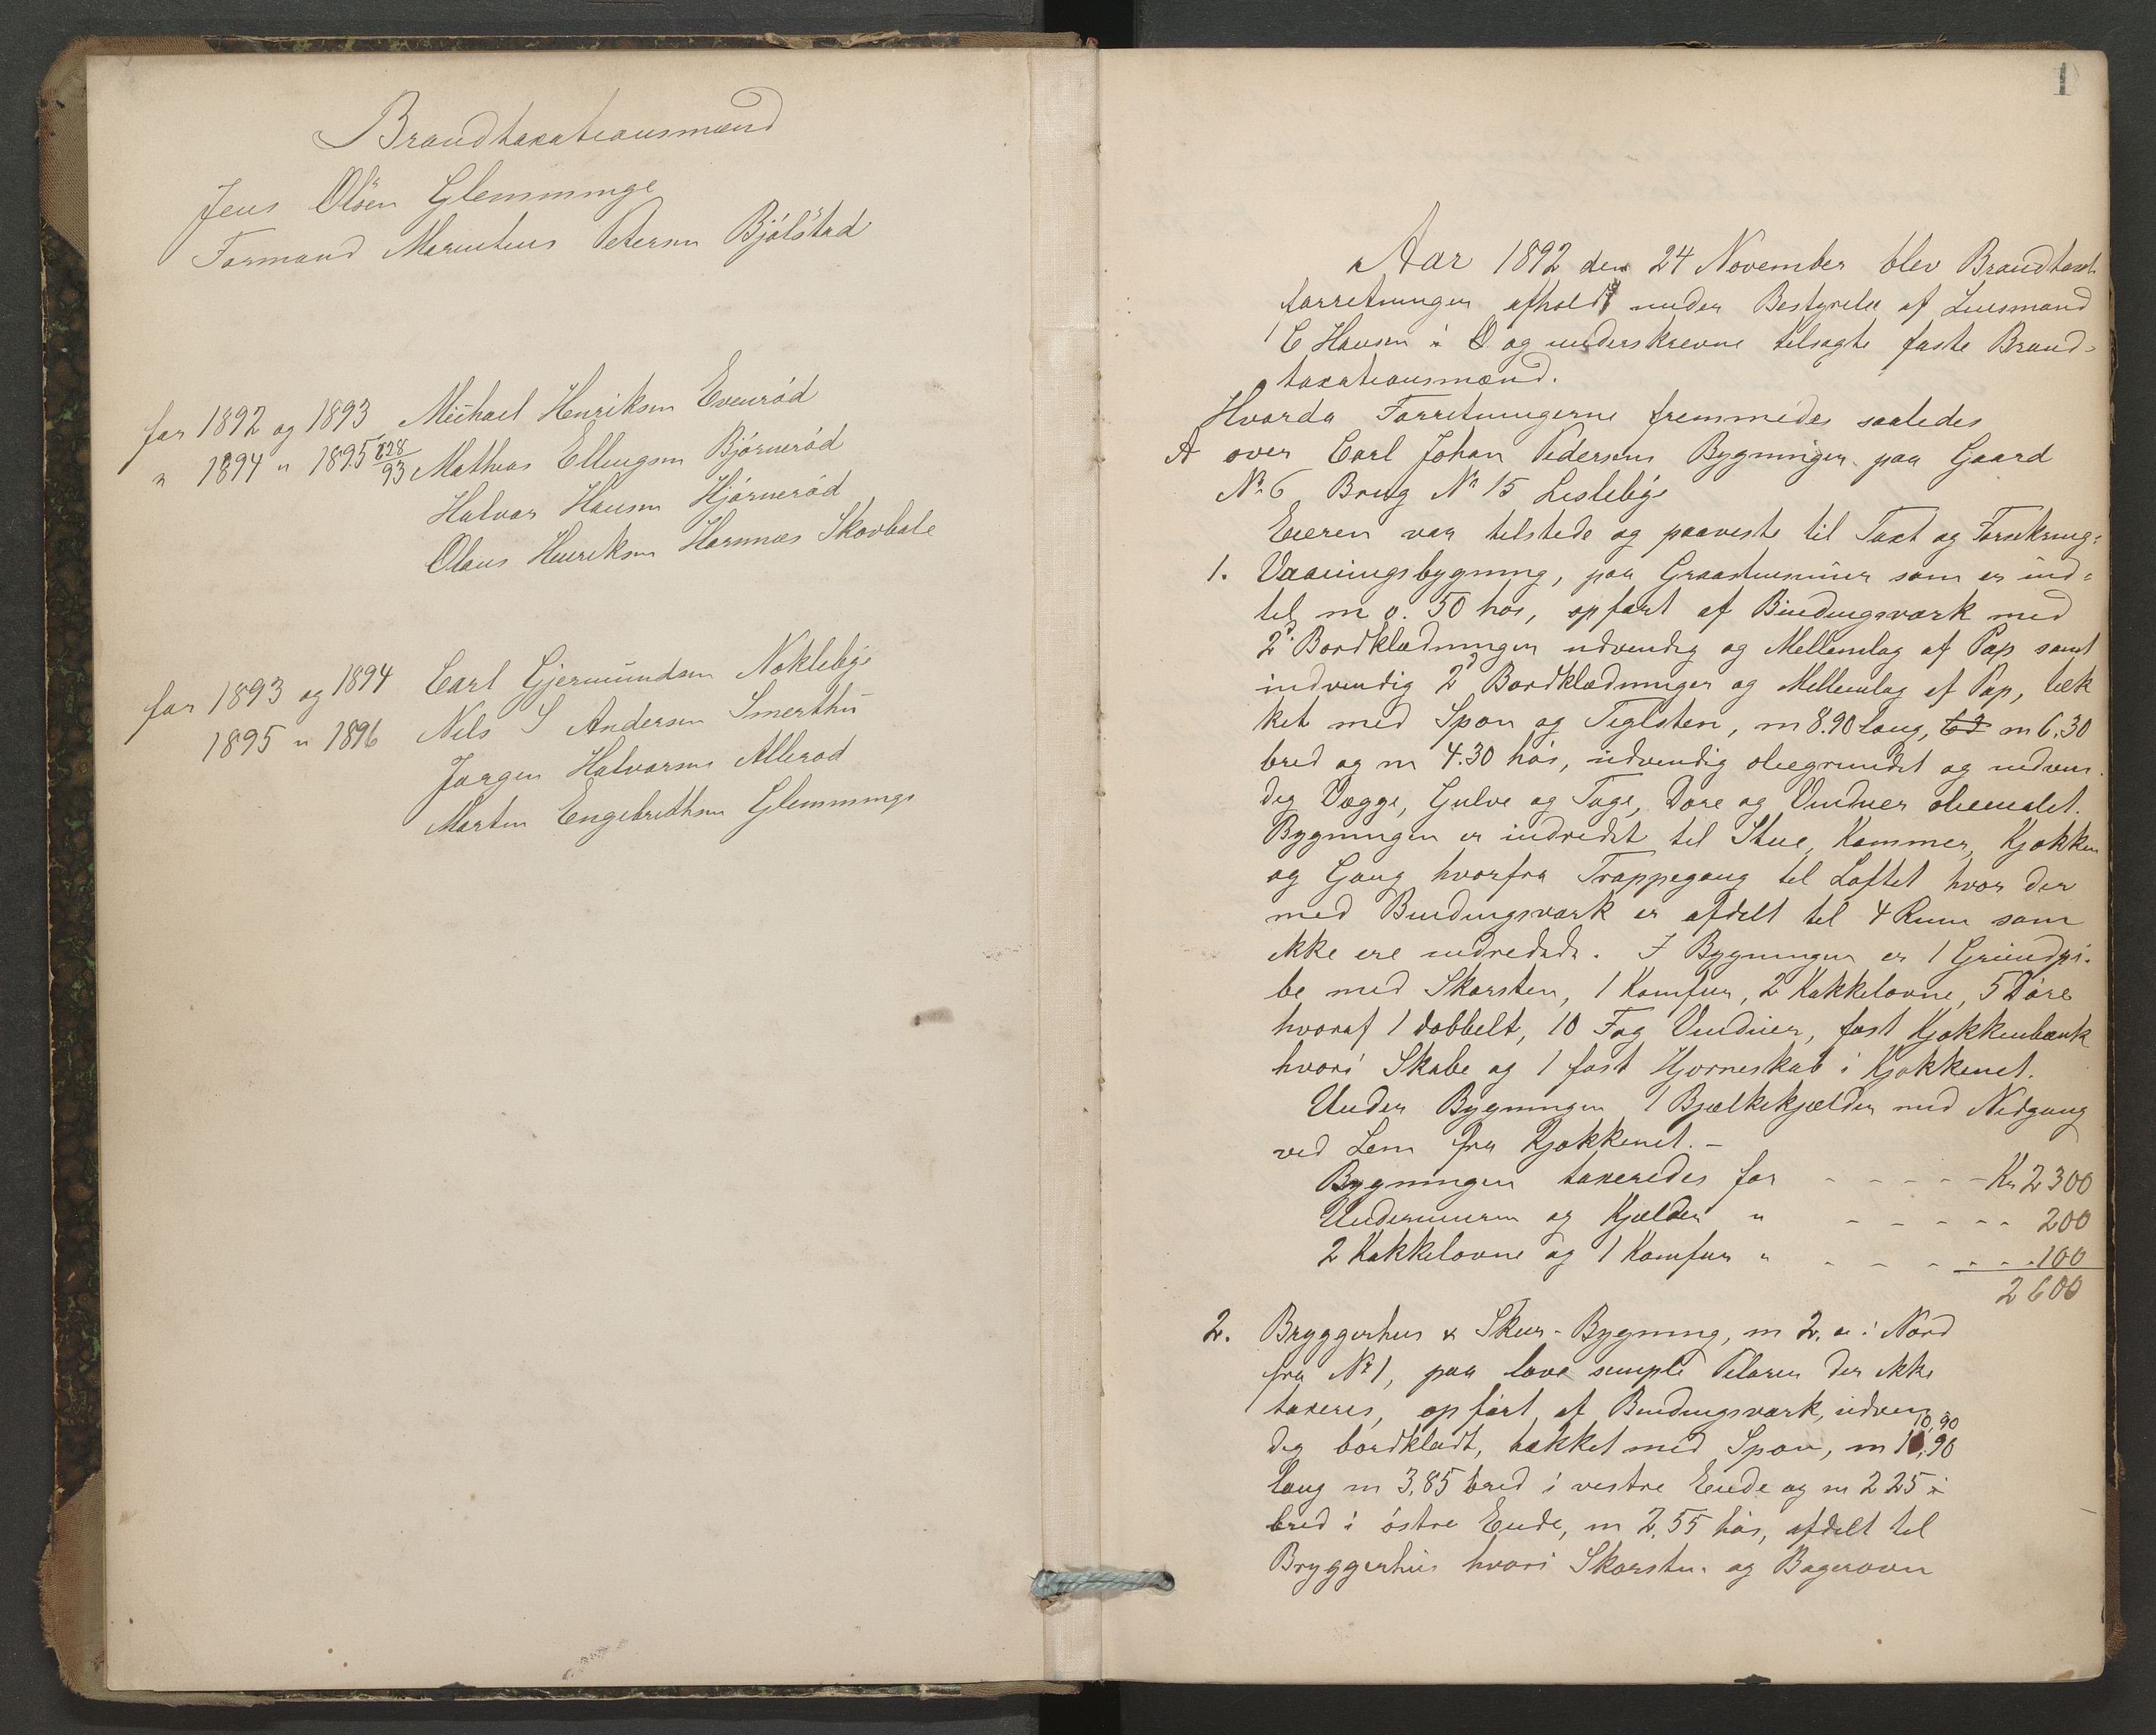 Brandtaxationsmænd
Jens Olsen Glemminge
Formand Marentius Petersen Bjølstad
for 1892 og 1893 Michael Henriksen Evenrød
" 1894 " 1895 828/93 Mathias Ellingsen Bjørnerød
Halvor Hansen Hjørnerød
Olaus Henriksen Hornnæs Skovbale
for 1893 og 1894 Carl Gjermundsen Nøkleby
1895 " 1896 Nils S Andersen Smerthu
Jørgen Halvorsen Allerød
Martin Engebrethsen Glemminge
1
Aar 1892 den 24 November blev Brandtaxt
forretninger afholdt under Bestyrelse af Lensmand
C Hansen i O. og underskrevne tilsagte faste Brand-
taxationsmænd.
Hvorda Forretningerne fremmedes saaledes
A over Carl Johan Pedersens Bygninger paa Gaard
No 6 Brug No 15 Lisleby
Eieren var tilstede og paaviste til Taxt og Forsikring:
1. Vaaningsbygning, paa Graastensmur som er ind-
til m 0.50 høi, opført af Bindingsværk med
2de Bordklædninger udvendig og Mellemlag af Pap samt
indvendig 2de Bordklædninger og Mellemlag af Pap, tæk
ket med Spon og Teglsten, m 8.90 lang, m 6.30
bred og m 4.30 høi, udvendig oliegrundet og indven
dig Vægge, Gulve og Tage, Døre og Vinduer oliemalet.
Bygningen er indredet til Stue, Kammer, Kjøkken
og Gang hvorfra Trappegang til Loftet hvor der
med Bindingsværk er afdelt til 4 Rum som
ikke ere indredede. I Bygningen er 1 Grundpi-
be med Skorsten, 1 Komfur, 2 Kakkelovne, 5 Døre
hvoraf 1 dobbelt, 10 Fag Vinduer, fast Kjøkkenbænk
hvori Skabe og 1 fast Hjørneskab i Kjøkkenet.
Under Bygningen 1 Bjælkekjælder med Nedgang
ved Lem fra Kjøkkenet. -
Bygningen taxeredes for - - - - - Kr 2300
Undermuren og Kjælder " - - - - - 200
2 Kakkelovne og 1 Komfur " - - - - - 100
2600
2. Bryggerhus & Skur-Bygning, m 2. i Nord
fra No 1, paa lave simple Pilarer der ikke
taxeres, opført af Bindingsværk, udven
10,90
dig bordklædt, tækket med Spon, m 10,90
lang m 3,85 bred i vestre Ende og m 2 25
bred i østre Ende, m 2,55 høi, afdelt til
Bryggerhus hvori Skorsten og Bagerovn